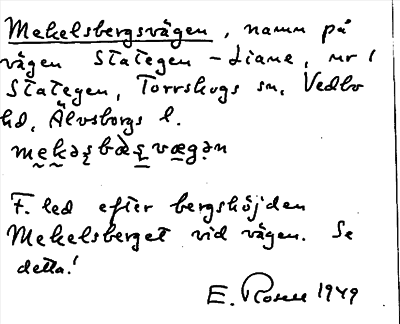 Mekelsbergsvägen, namn på
vägen Stategen - Liane, nr 1
Stategen, Torrskogs sn, Vedbo
hd, Älvsborgs l.
F. led efter bergshöjden
Mekelsberget vid vägen. Se
detta!
E. Rosell 1949